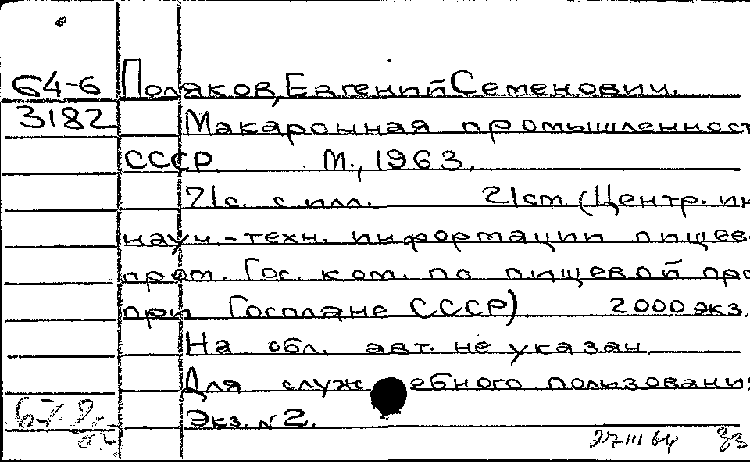 64-6 Поляков, Евгений Семенович.
3182 Макаронная промышленност
СССР М., 1963.
71с. с илл. 21см (Центр. ин
науч.-техн. информации пищев
пром. Гос. ком. по пищевой про
при Госплане СССР) 2000 экз.
На обл. авт. не указан
Для служебного пользования
Экз. №2.
27 III 64 33